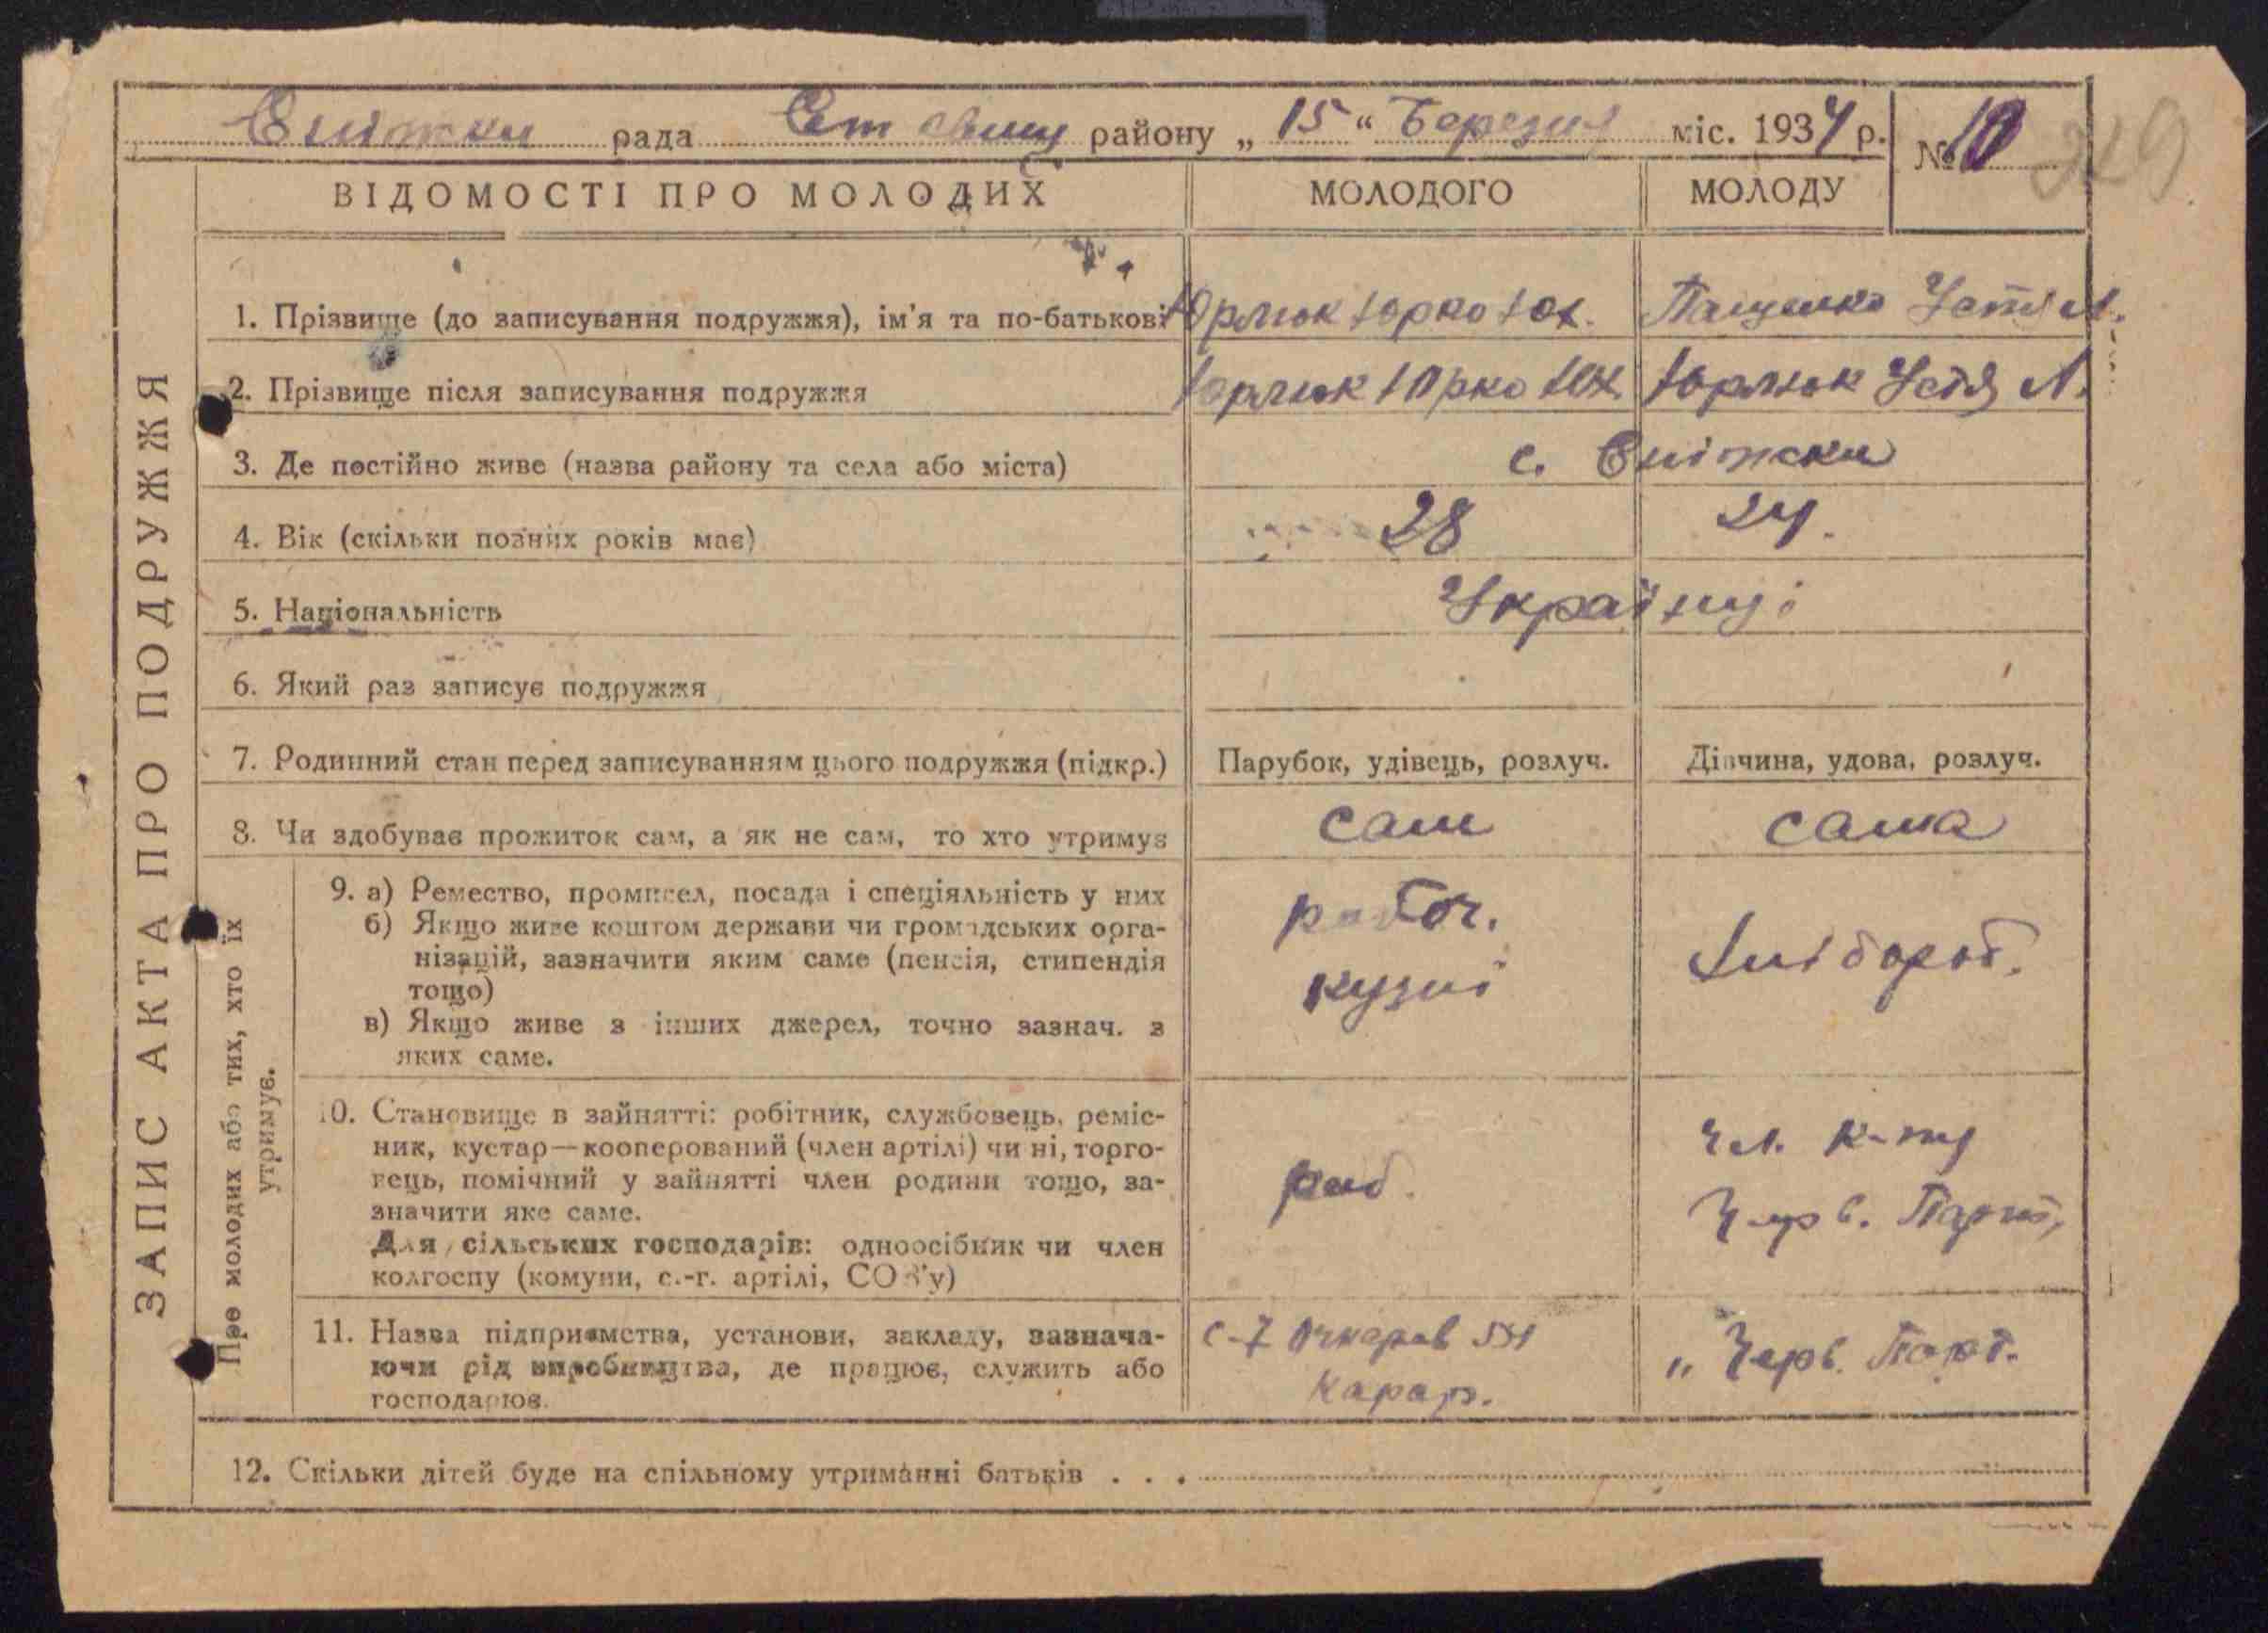 Сніжки рада району „ 15 “ Березня міс. 1934 р. № 10
219
ЗАПИС АКТА ПРО ПОДРУЖЖЯ
ВІДОМОСТІ ПРО МОЛОДИХ МОЛОДОГО МОЛОДУ
1. Прізвище (до записування подружжя), ім'я та по-батькові Юрлюк Юрко Юх. Пащенко Устя Л.
2. Прізвище після записування подружжя Юрлюк Юрко Юх. Юрлюк Устя Л.
3. Де постійно живе (назва району та села або міста) с. Сніжки
4. Вік (скільки повних років має) 28 24.
5. Національність Українці
6. Який раз записує подружжя
7. Родинний стан перед записуванням цього подружжя (підкр.) Парубок, удівець, розлуч. Дівчина, удова, розлуч.
8. Чи здобуває прожиток сам, а як не сам, то хто утримує сам сама
Про молодих або тих, хто їх
утримує.
9. а) Ремество, промисел, посада і спеціяльність у них
б) Якщо живе коштом держави чи громадських орга-
нізацій, зазначити яким саме (пенсія, стипендія
тощо)
в) Якщо живе з інших джерел, точно зазнач. з
яких саме.
робоч.
кузні
хлібороб.
10. Становище в зайнятті: робітник, службовець, реміс-
ник, кустар—кооперований (член артілі) чи ні, торго-
вець, помічний у зайнятті член родини тощо, за-
значити яке саме.
Для сільських господарів: одноосібник чи член
колгоспу (комуни, с.-г. артілі, СОЗ'у)
роб.
чл. к-пу
Черв. Парт.
11. Назва підприємства, установи, закладу, зазнача-
ючи рід виробництва, де працює, служить або
господарює.
с-г
„ Черв. Парт.
12. Скільки дітей буде на спільному утриманні батьків . . .